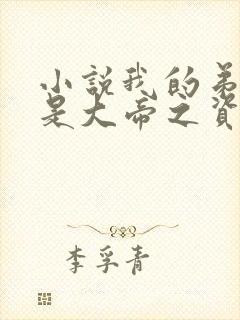 小說我的弟
是大帝之資
李孚青